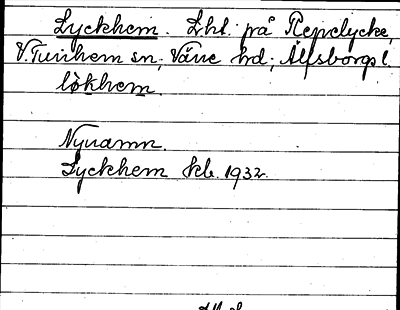 Lyckhem. Lht. på Repelycke,
V. Tunhem sn, Väne hd; Älfsborgs l.
lòkhem.
Nynamn.
Lyckhem kb. 1932.